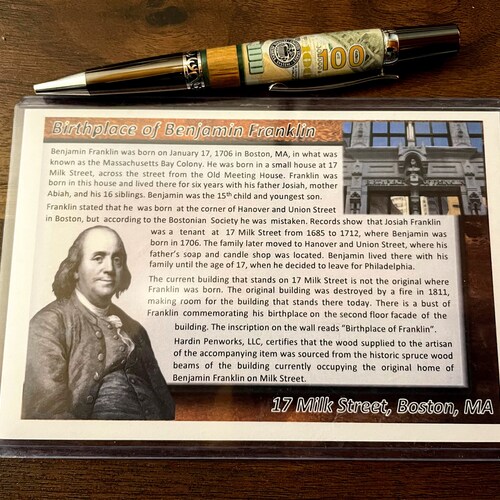 100
Birthplace of Benjamin Franklin
Benjamin Franklin was born on January 17, 1706 in Boston, MA, in what was
known as the Massachusetts Bay Colony. He was born in a small house at 17
Milk Street, across the street from the Old Meeting House. Franklin was
born in this house and lived there for six years with his father Josiah, mother
Abiah, and his 16 siblings. Benjamin was the 15th child and youngest son.
Franklin stated that he was born at the corner of Hanover and Union Street
in Boston, but according to the Bostonian Society he was mistaken. Records show that Josiah Franklin
was a tenant at 17 Milk Street from 1685 to 1712, where Benjamin was
born in 1706. The family later moved to Hanover and Union Street, where his
father's soap and candle shop was located. Benjamin lived there with his
family until the age of 17, when he decided to leave for Philadelphia.
The current building that stands on 17 Milk Street is not the original where
Franklin was born. The original building was destroyed by a fire in 1811,
making room for the building that stands there today. There is a bust of
Franklin commemorating his birthplace on the second floor facade of the
building. The inscription on the wall reads "Birthplace of Franklin".
Hardin Penworks, LLC, certifies that the wood supplied to the artisan
of the accompanying item was sourced from the historic spruce wood
beams of the building currently occupying the original home of
Benjamin Franklin on Milk Street.
17 Milk Street, Boston, MA